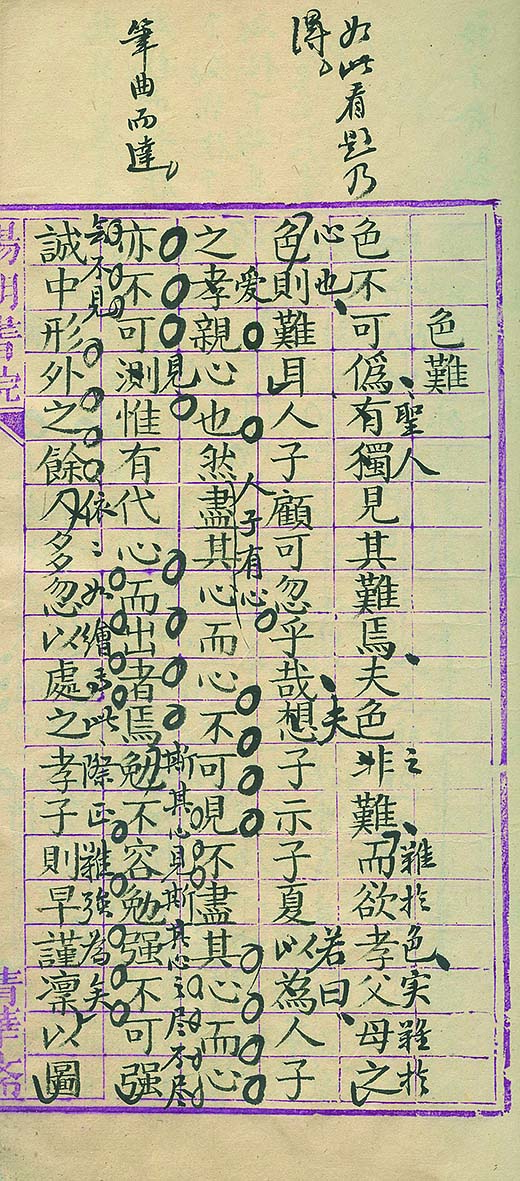 如此看題乃
得
筆曲而達
色難
聖人 之難於色实難於
色不可偽有獨見其難焉夫色非難而欲孝父母之
心也 夫 若曰
色則難耳人子顧可忽乎哉想子示子夏以為人子
愛 人子有心
之孝親心也然盡其心而心不可見不盡其心而心
見 斯其心見斯其心之尽不尽
亦不可測惟有代心而出者焉勉不容勉强不可强
依依如繪 此際正難強為矣
誠中形外之餘人多忽以處之孝子則早謹凜以圖
陽明書院
清華名